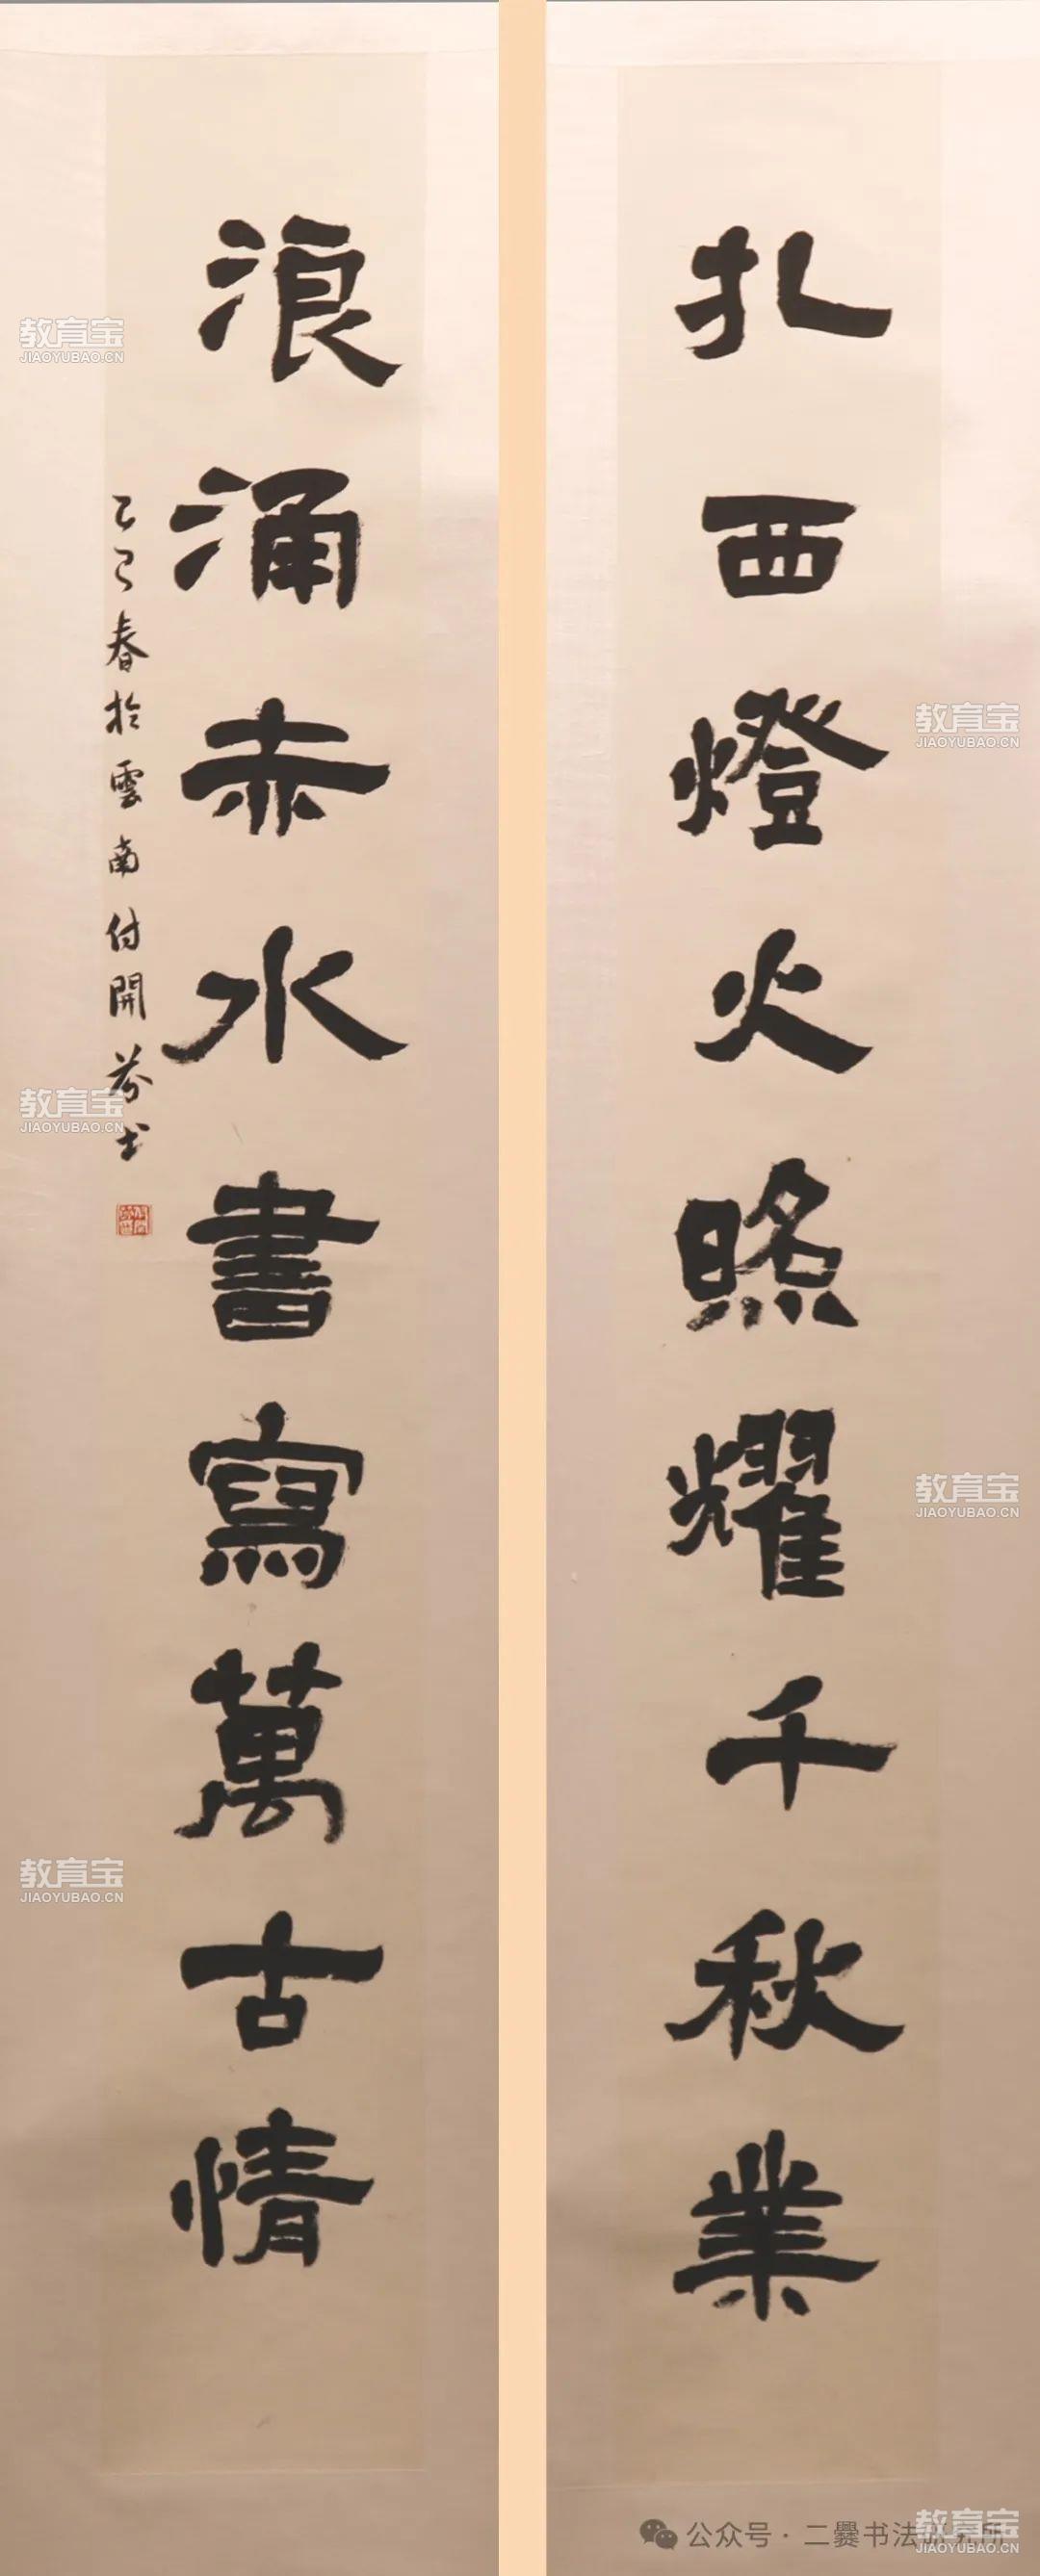 扎西燈火照耀千秋業
浪涌赤水書寫萬古情
乙巳春於雲南付開芬書
教育宝
JIAOYUBAO.CN
教育宝
JIAOYUBAO.CN
教育宝
JIAOYUBAO.CN
教育宝
JIAOYUBAO.CN
教育宝
JIAOYUBAO.CN
教育宝
JIAOYUBAO.CN
公众号·二爨书法